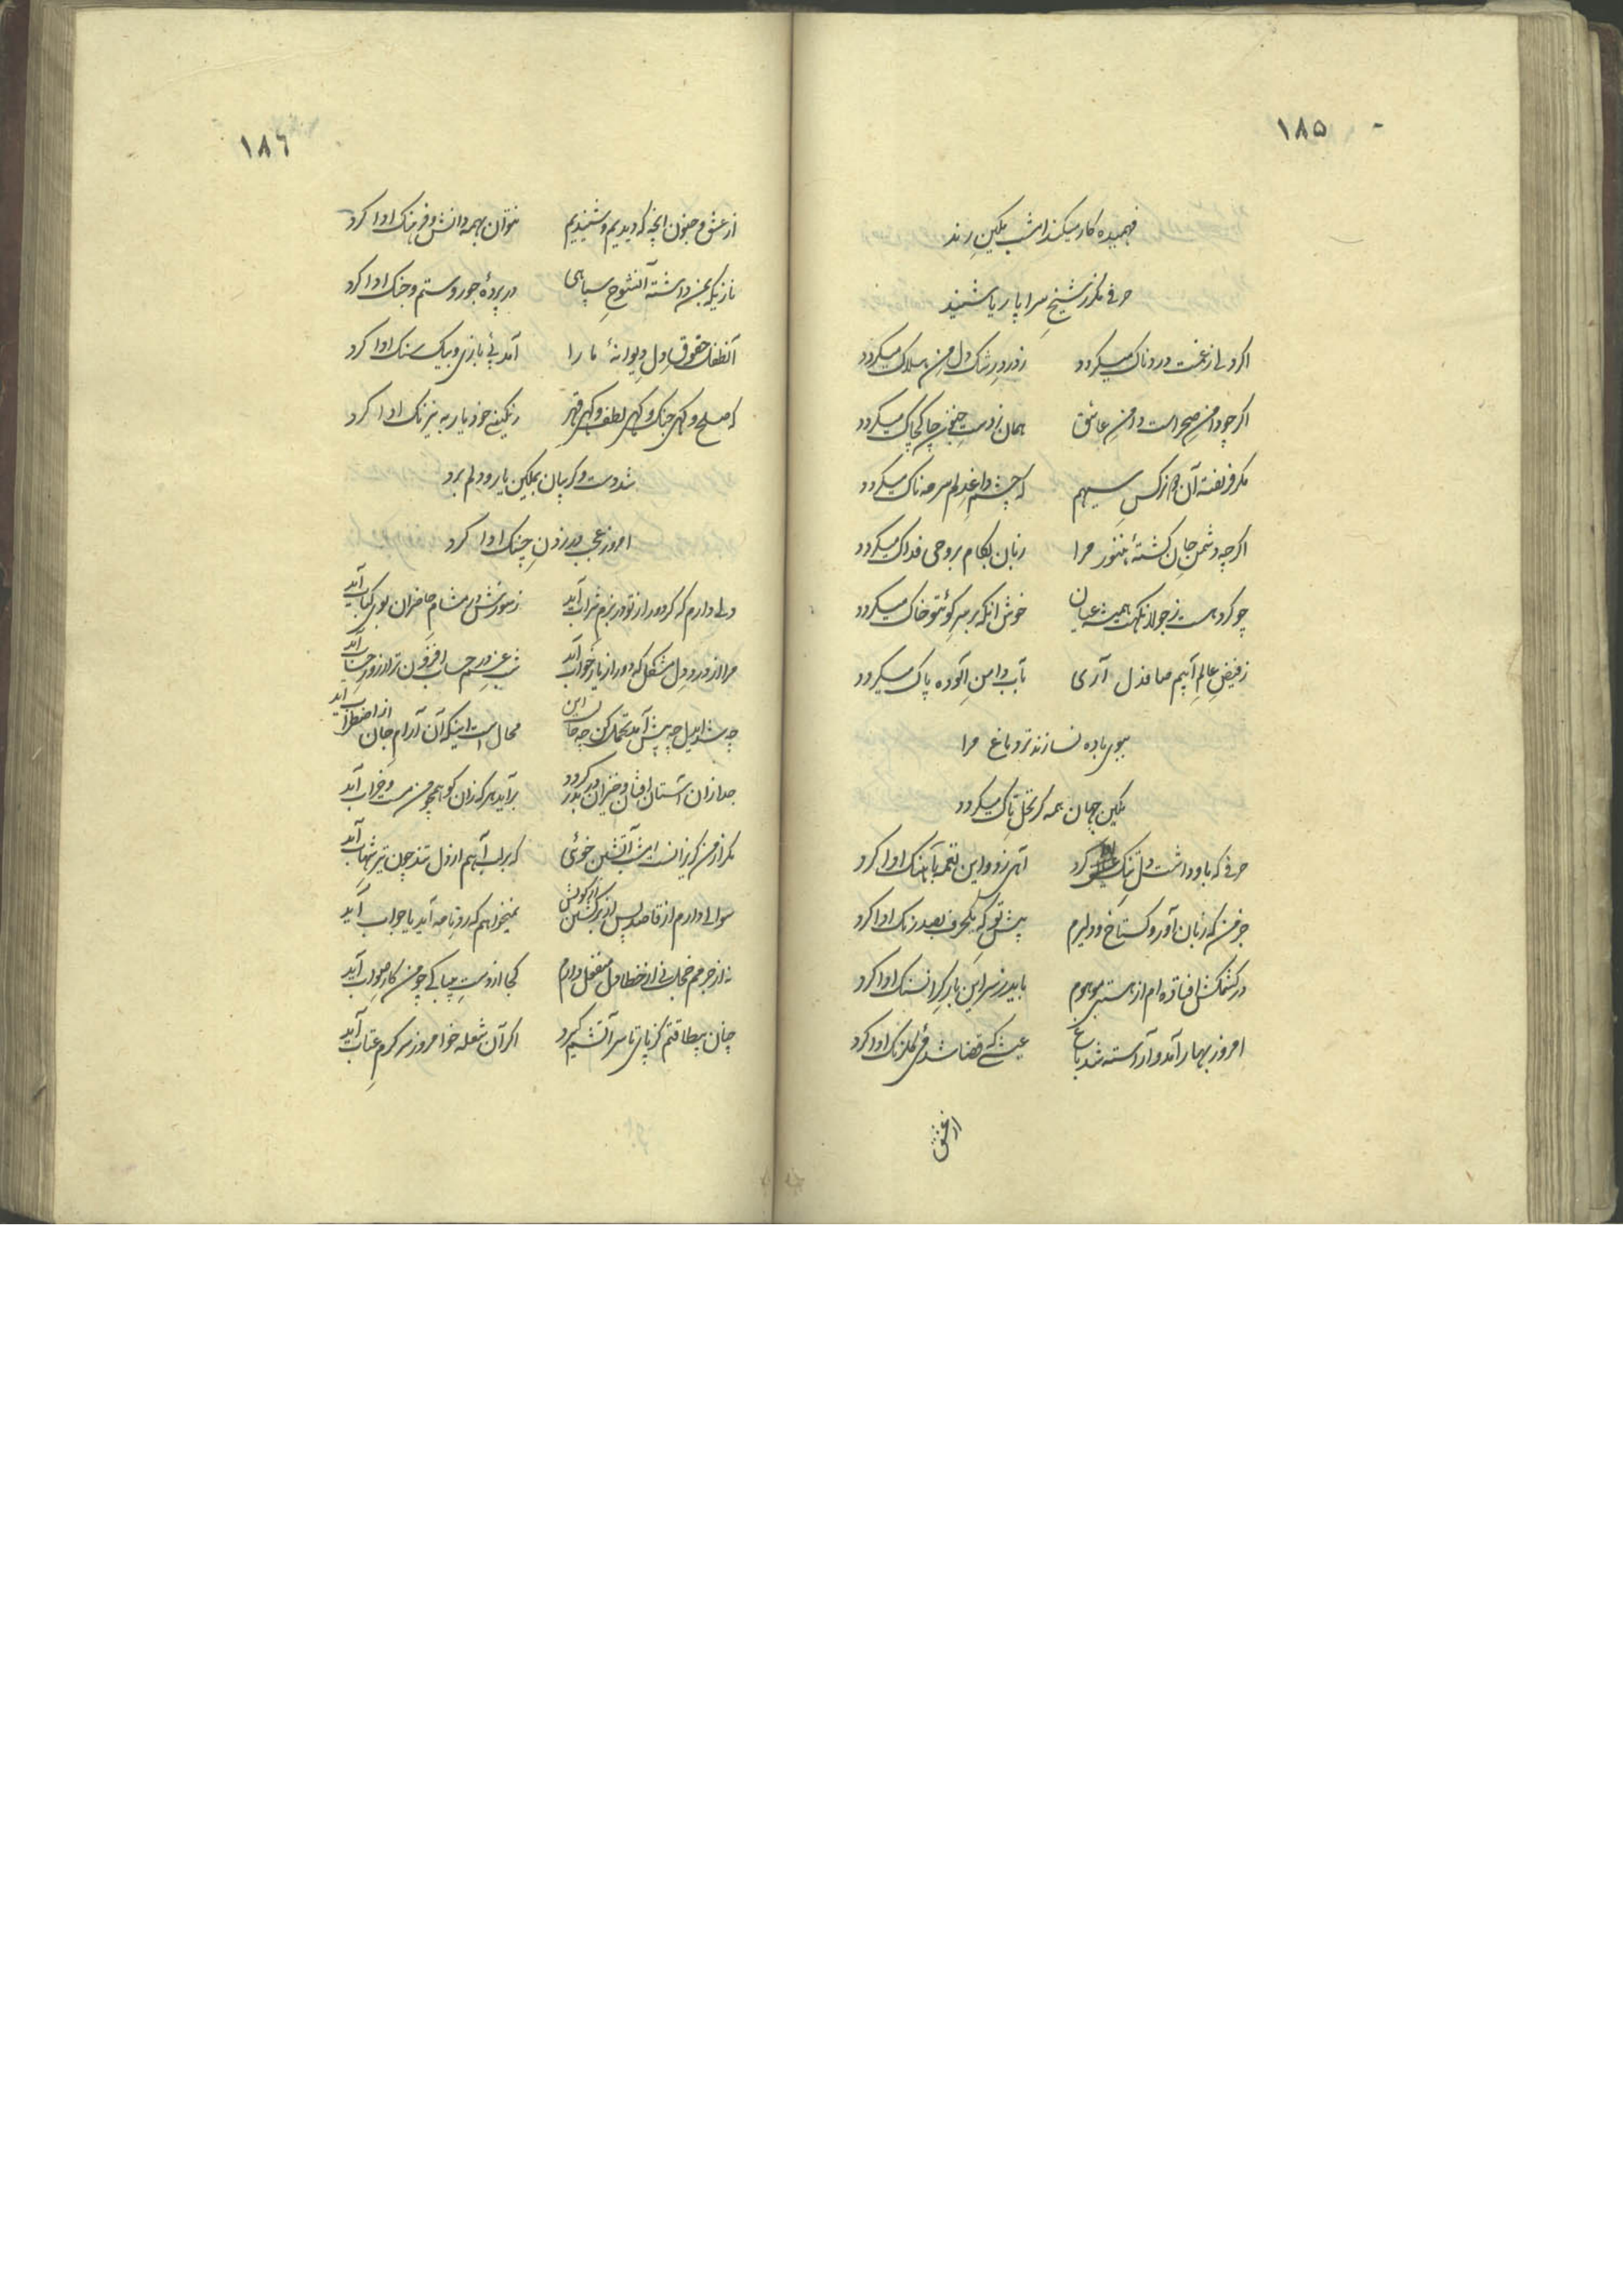 ۱۸۵
فهمیده کار میکند امشب مکین رند
حرفی مکرر شیخ سراپا ریا شنید
اکر دلی از غمت دردناک میکردد زدرد رشک دل من هلاک میکردد
اکر چو دامن صحراست دامن عاشق همان زدست جنون چاک چاک میکردد
مکر فریفته آن نرکس سیهم که چشم داغ دلم سرمه ناک میکردد
اکرچه دشمن جان کشتهٔ هنوز مرا زبان بکام بروحی فداک میکردد
چو کرد هست ز جولانکهت همیشه عیان خوش آنکه بر سر کوئتو خاک میکردد
زفیض عالم آبیم صافدل آری بآب دامن آلوده پاک میکردد
ببوی باده نسازند تر دماغ مرا
مکین جهان همه کر نخل تاک میکردد
حرفی که باو داشت دل تنک ادا کرد آهی زد و این نغمه بآهنک ادا کرد
جز من که زبان آور و کستاخ و دلیرم پیش تو که یکحرف بصد رنک ادا کرد
در کشمکش افتاده ام از هستی موهوم باید ز سر این بار کرانسنک ادا کرد
امروز بهار آمد و آراسته شد باغ عیشی که قضا شد می کلرنک ادا کرد
از عشق
۱۸۶
از عشق و جنون آنچه که دیدیم و شنیدیم نتوان بهمه دانش و فرهنک ادا کرد
نازیکه بمن داشته آنشوخ سپاهی در پردهٔ جور و ستم و جنک ادا کرد
آنطفل حقوق دل دیوانهٔ ما را آمد پئے بازی و بیک سنک ادا کرد
که صلح و کهی جنک و کهی لطف و کهی قهر رنکینی خود یار به نیرنک ادا کرد
شد دست و کریبان بمکین یار و دلم برد
امروز عجب در زدن چنک ادا کرد
دلی دارم که کر دور از تو در بزم شراب آید زسوزش در مشام حاضران بوی کباب آید
مرا از درد دل مشکل که دور از یار خواب آید شب غم در حساب افزون تر از روز حساب آید
چه شد ایدل چه پیش آمد تحمل کن چه حالست این محال است اینکه آن آرام جان از اضطراب آید
جدا زان آستان افتان و خیزان در بدر کردد برآید هر که زان کو همچو من مست و خراب آید
مکر از من کریزانست امشب آتشین خوئی که بر لب آهم از دل تند چون تیر شهاب آید
سوالی دارم از قاصد پس از برکشتن از کویش نمیخواهم که رو نامه آید یا جواب آید
نه از جرمم خجالت نی از خطا دل منفعل دارم کجا از دست بیباکی چو من کار صواب آید
چنان بیطاقتم کز پای تا سر آتشم کیرد اکر آن شعله خو امروز سرکرم عتاب آید